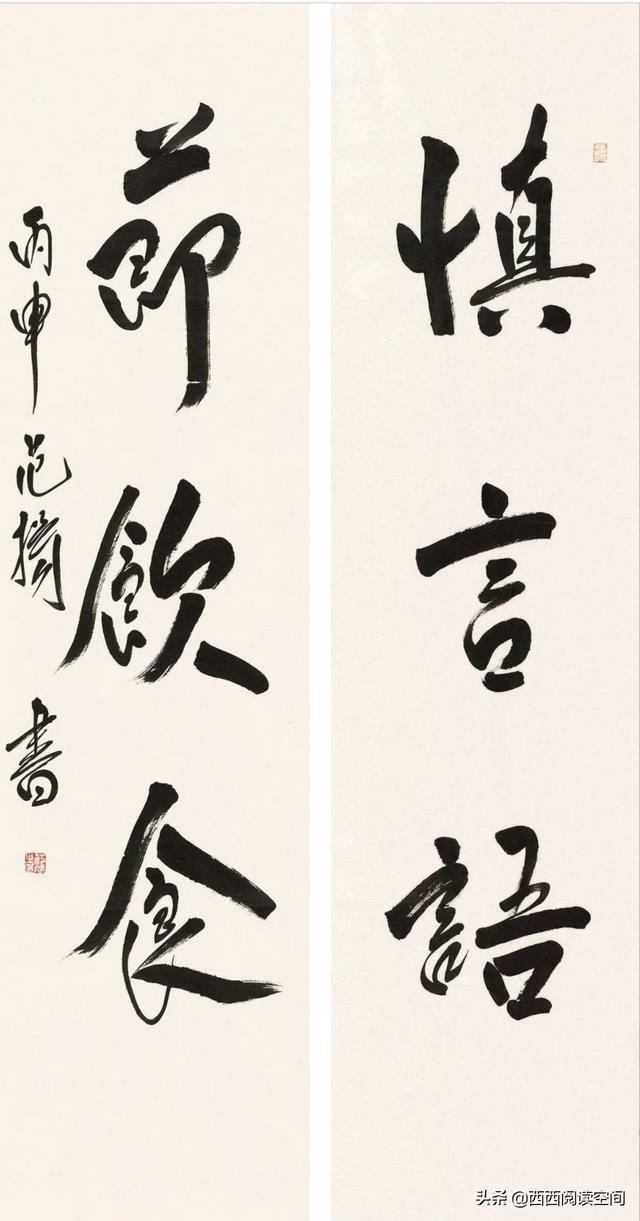 慎言語
節飲食
丙申范揚書
头条 @西西阅读空间